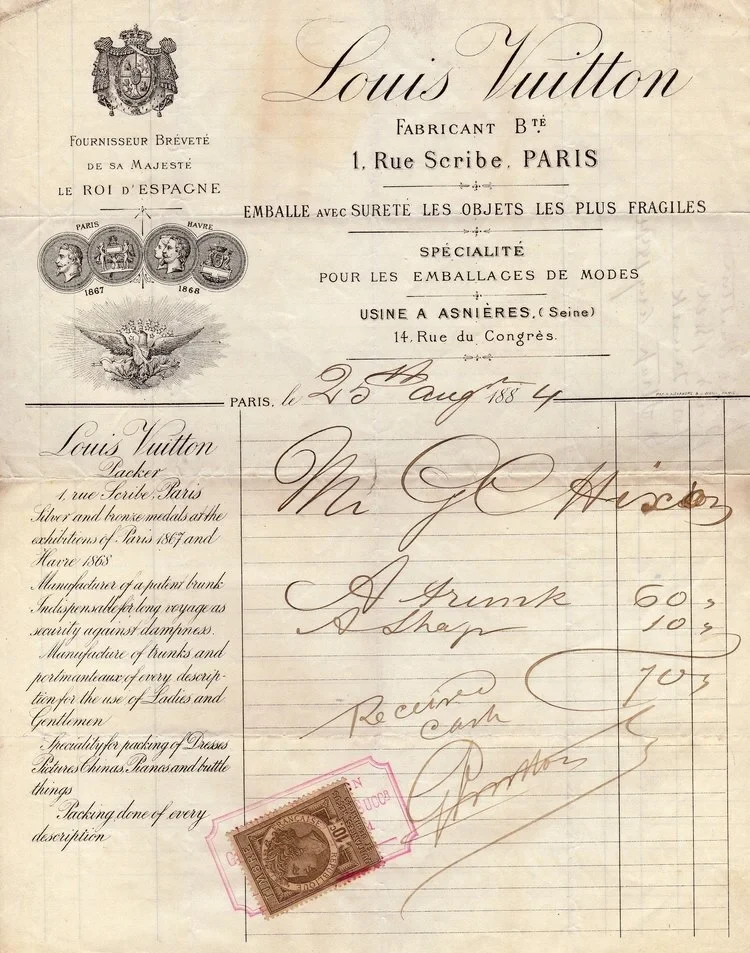 Louis Vuitton
FABRICANT BTÉ
1, Rue Scribe, PARIS
EMBALLE AVEC SURETÉ LES OBJETS LES PLUS FRAGILES
SPÉCIALITÉ
POUR LES EMBALLAGES DE MODES
USINE A ASNIÈRES, (Seine)
14, Rue du Congrès.
FOURNISSEUR BRÉVETÉ
DE SA MAJESTÉ
LE ROI D'ESPAGNE
PARIS HAVRE
1867 1868
PARIS, le 25th augst 1884
Louis Vuitton
Packer
1, rue Scribe, Paris
Silver and bronze medals at the
exhibitions of Paris 1867 and
Havre 1868
Manufacturer of a patent trunk
Indispensable for long voyage as
security against dampness.
Manufacture of trunks and
portmanteaux of every descrip-
tion for the use of Ladies and
Gentlemen
Speciality for packing of Dresses
Pictures Chinas, Pianos and buttle
things
Packing done of every
description
Mr G C Hixon
A trunk 60 "
A Shap 10 "
70 "
Received
cash
10c